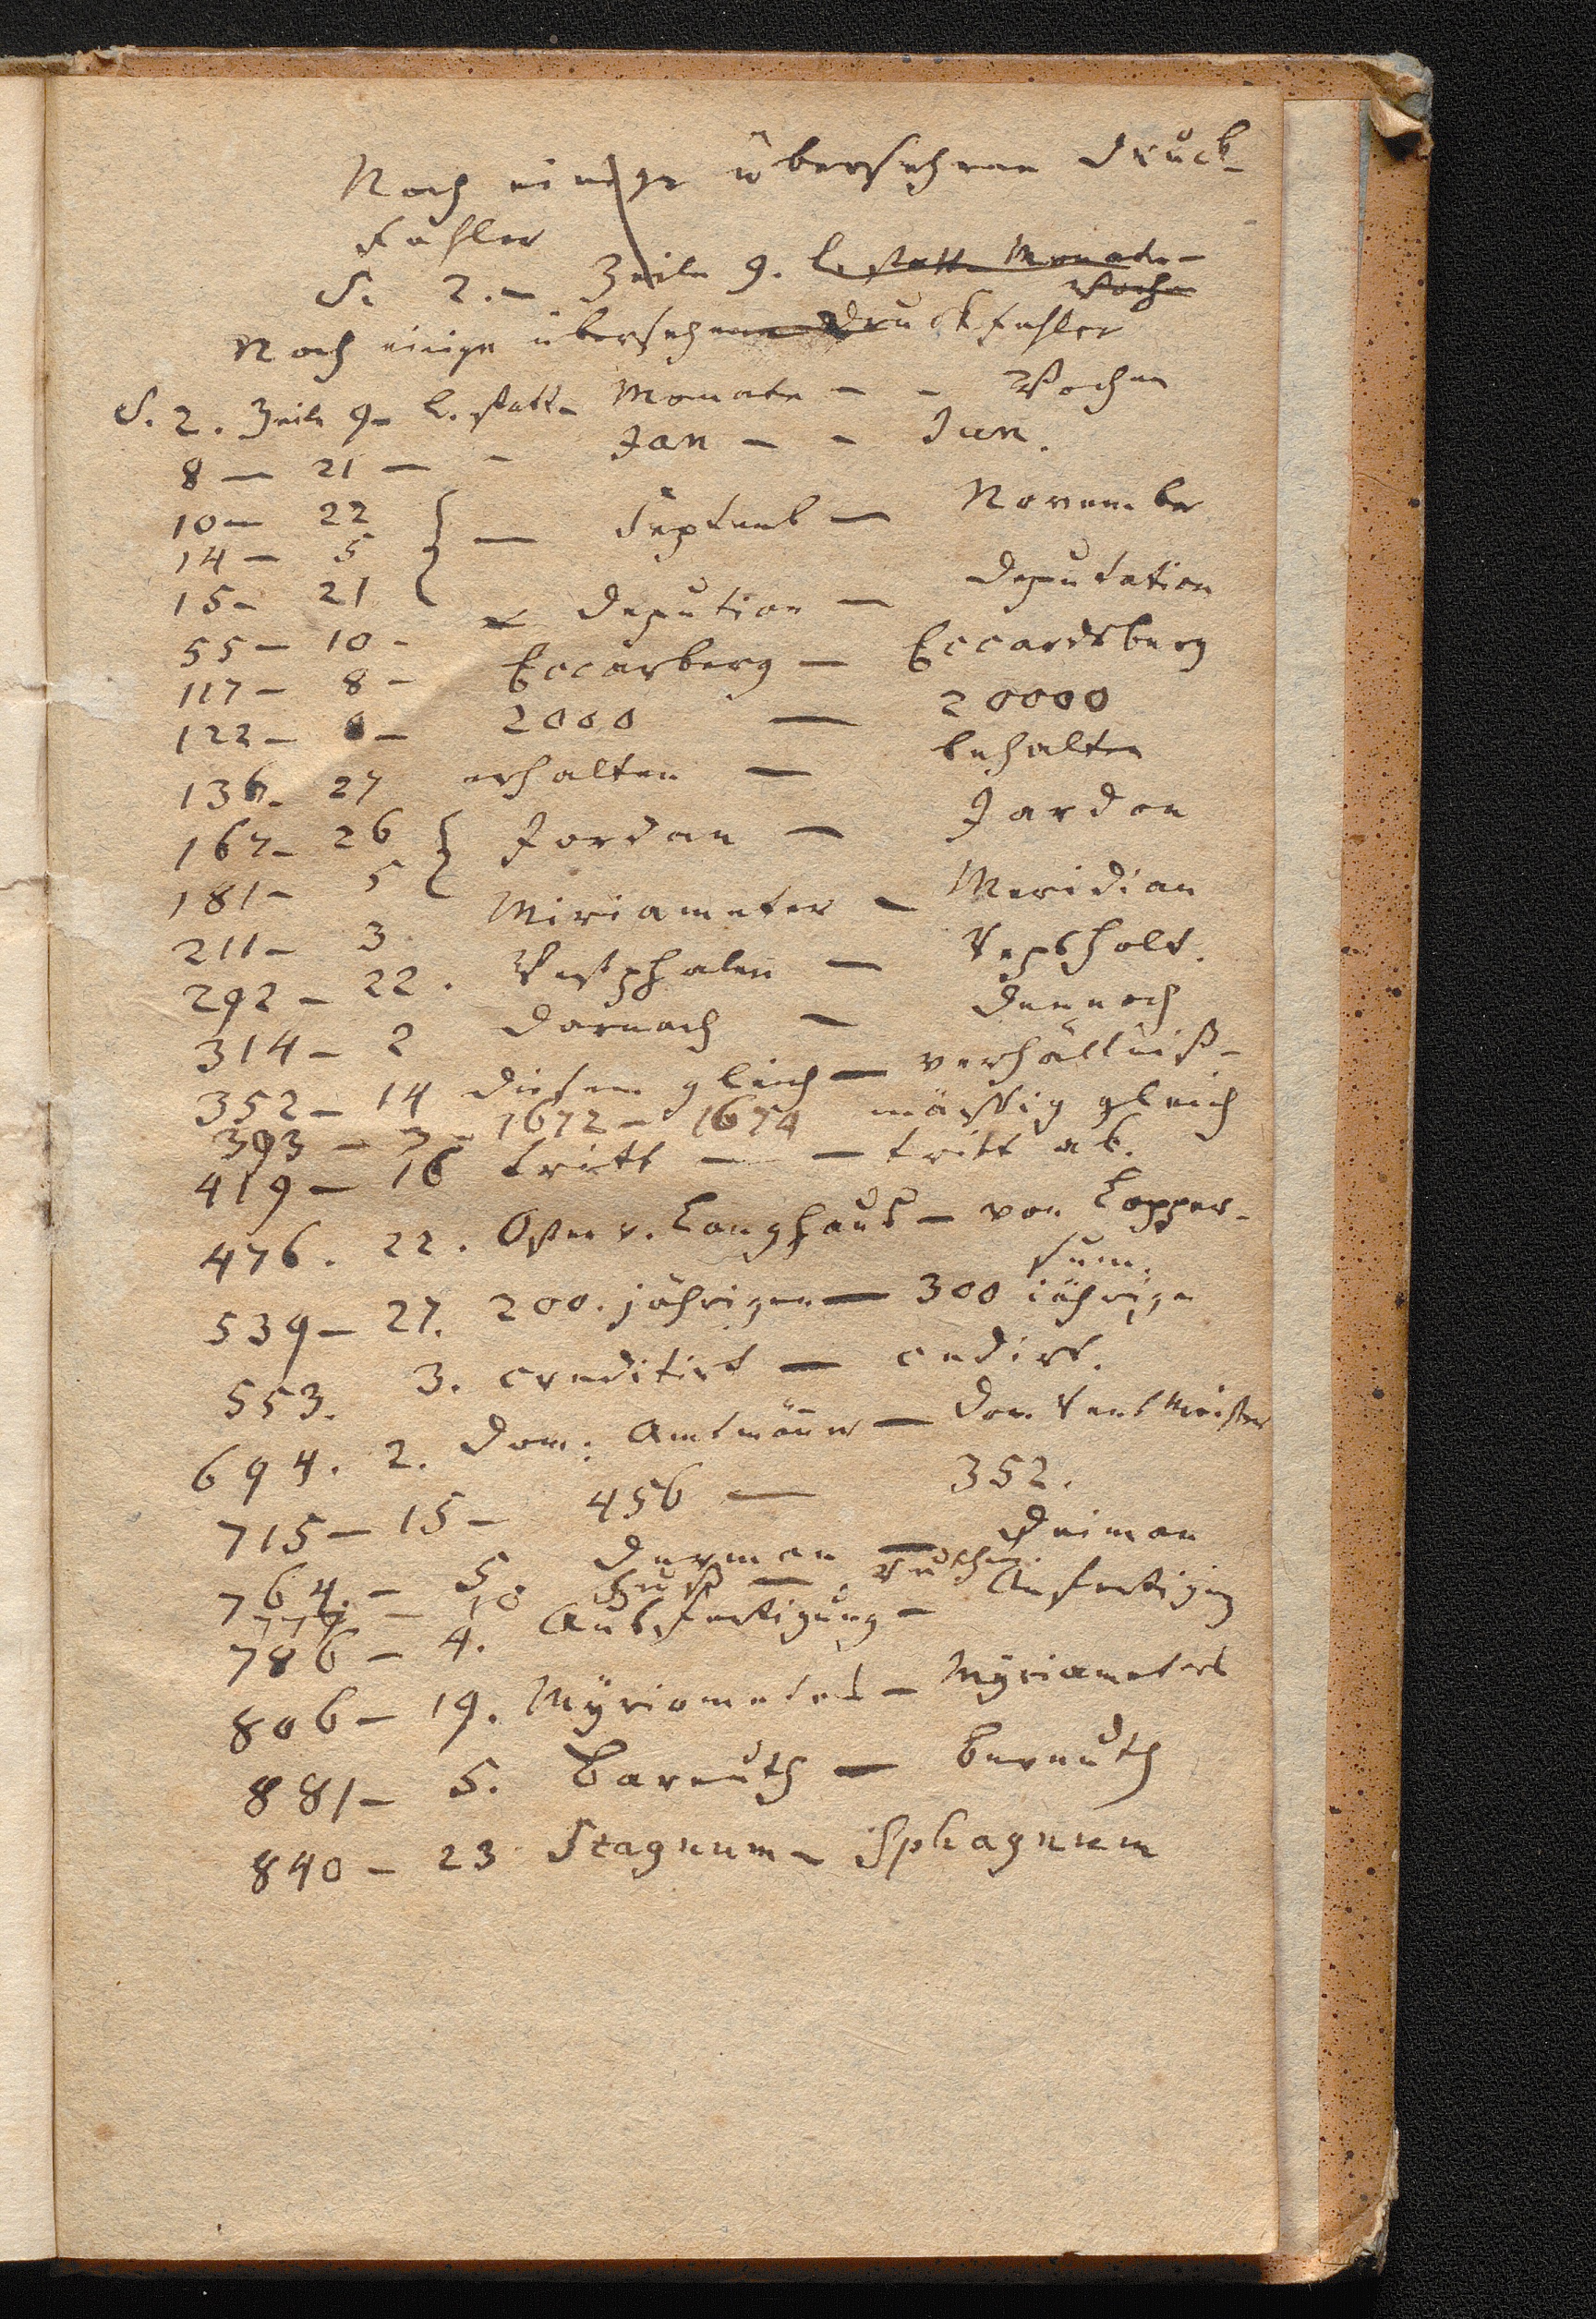 Noch einige übersehene Druck-
fehler
S. 2. – Zeile 9. l. statt Monate –
Wochen
Noch einige übersehene Druckfehler
S. 2. Zeile 9 – l. statt – Monate – – Wochen
8 – 21 – – Jan – – Jun.
10 – 22
14 – 5 } – Septemb – November
15 – 21
55 – 10 – Depution – Deputation
117 – 8 – Eccarberg – Eccardsberg
122 – 8 – 2000 – 20000
136 – 27 erhalten – behalten
167 – 26 } Jordan – Jardon
181 – 5
211 – 3 Miriameter – Meridian
292 – 22. Westphalen – Repsholt.
314 – 2 darnach – dennoch
352 – 14 diesem gleich – verhältniß-
mäßig gleich
393 – 7 – 1672 – 1674
419 – 16 tritt – – tritt ab.
476. 22. Oster v. Langhaus – von Lopper-
sum.
539 – 27. 200. jährigen – 300 jährige
553. 3. creditirt – cedirt.
694. 2. Dom: Amtmänner – Dom Rentmeister
715 – 15 – 456 – 352.
764. – 5 Derman – Deiman
776 – 18 Fuß – Ruthen.
786 – 4. Ausfertigung – Anfertigung
806 – 19. Myriometers – Myriameters
881 – 5. Bareuth – Bereuth
840 – 23 Stagnum – Sphagnum